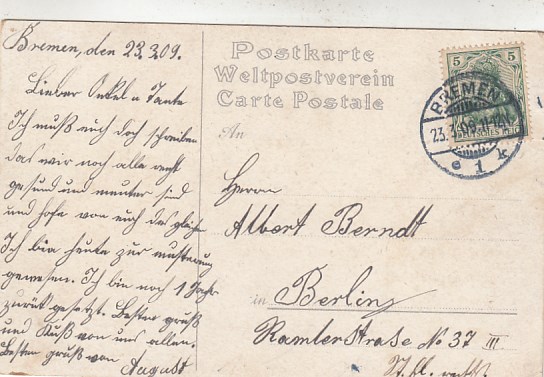 Bremen, den 23.3.09.
Lieber Onkel u Tante
Ich muß euch doch schreiben
das wir noch alle recht
gesund und munter sind
und hofe von euch das gleiche
Ich bin heute zur musterung
gewesen. Ich bin noch 1 Jahr
zurük gesetzt. Besten gruß
und Kuß von uns allen.
Besten gruß von
August
Postkarte
Weltpostverein
Carte Postale
An
Herrn
Albert Berndt
in Berlin
Ramlerstrase No 37 III
5 5
DEUTSCHES REICH
BREMEN
23.3.09
1 k